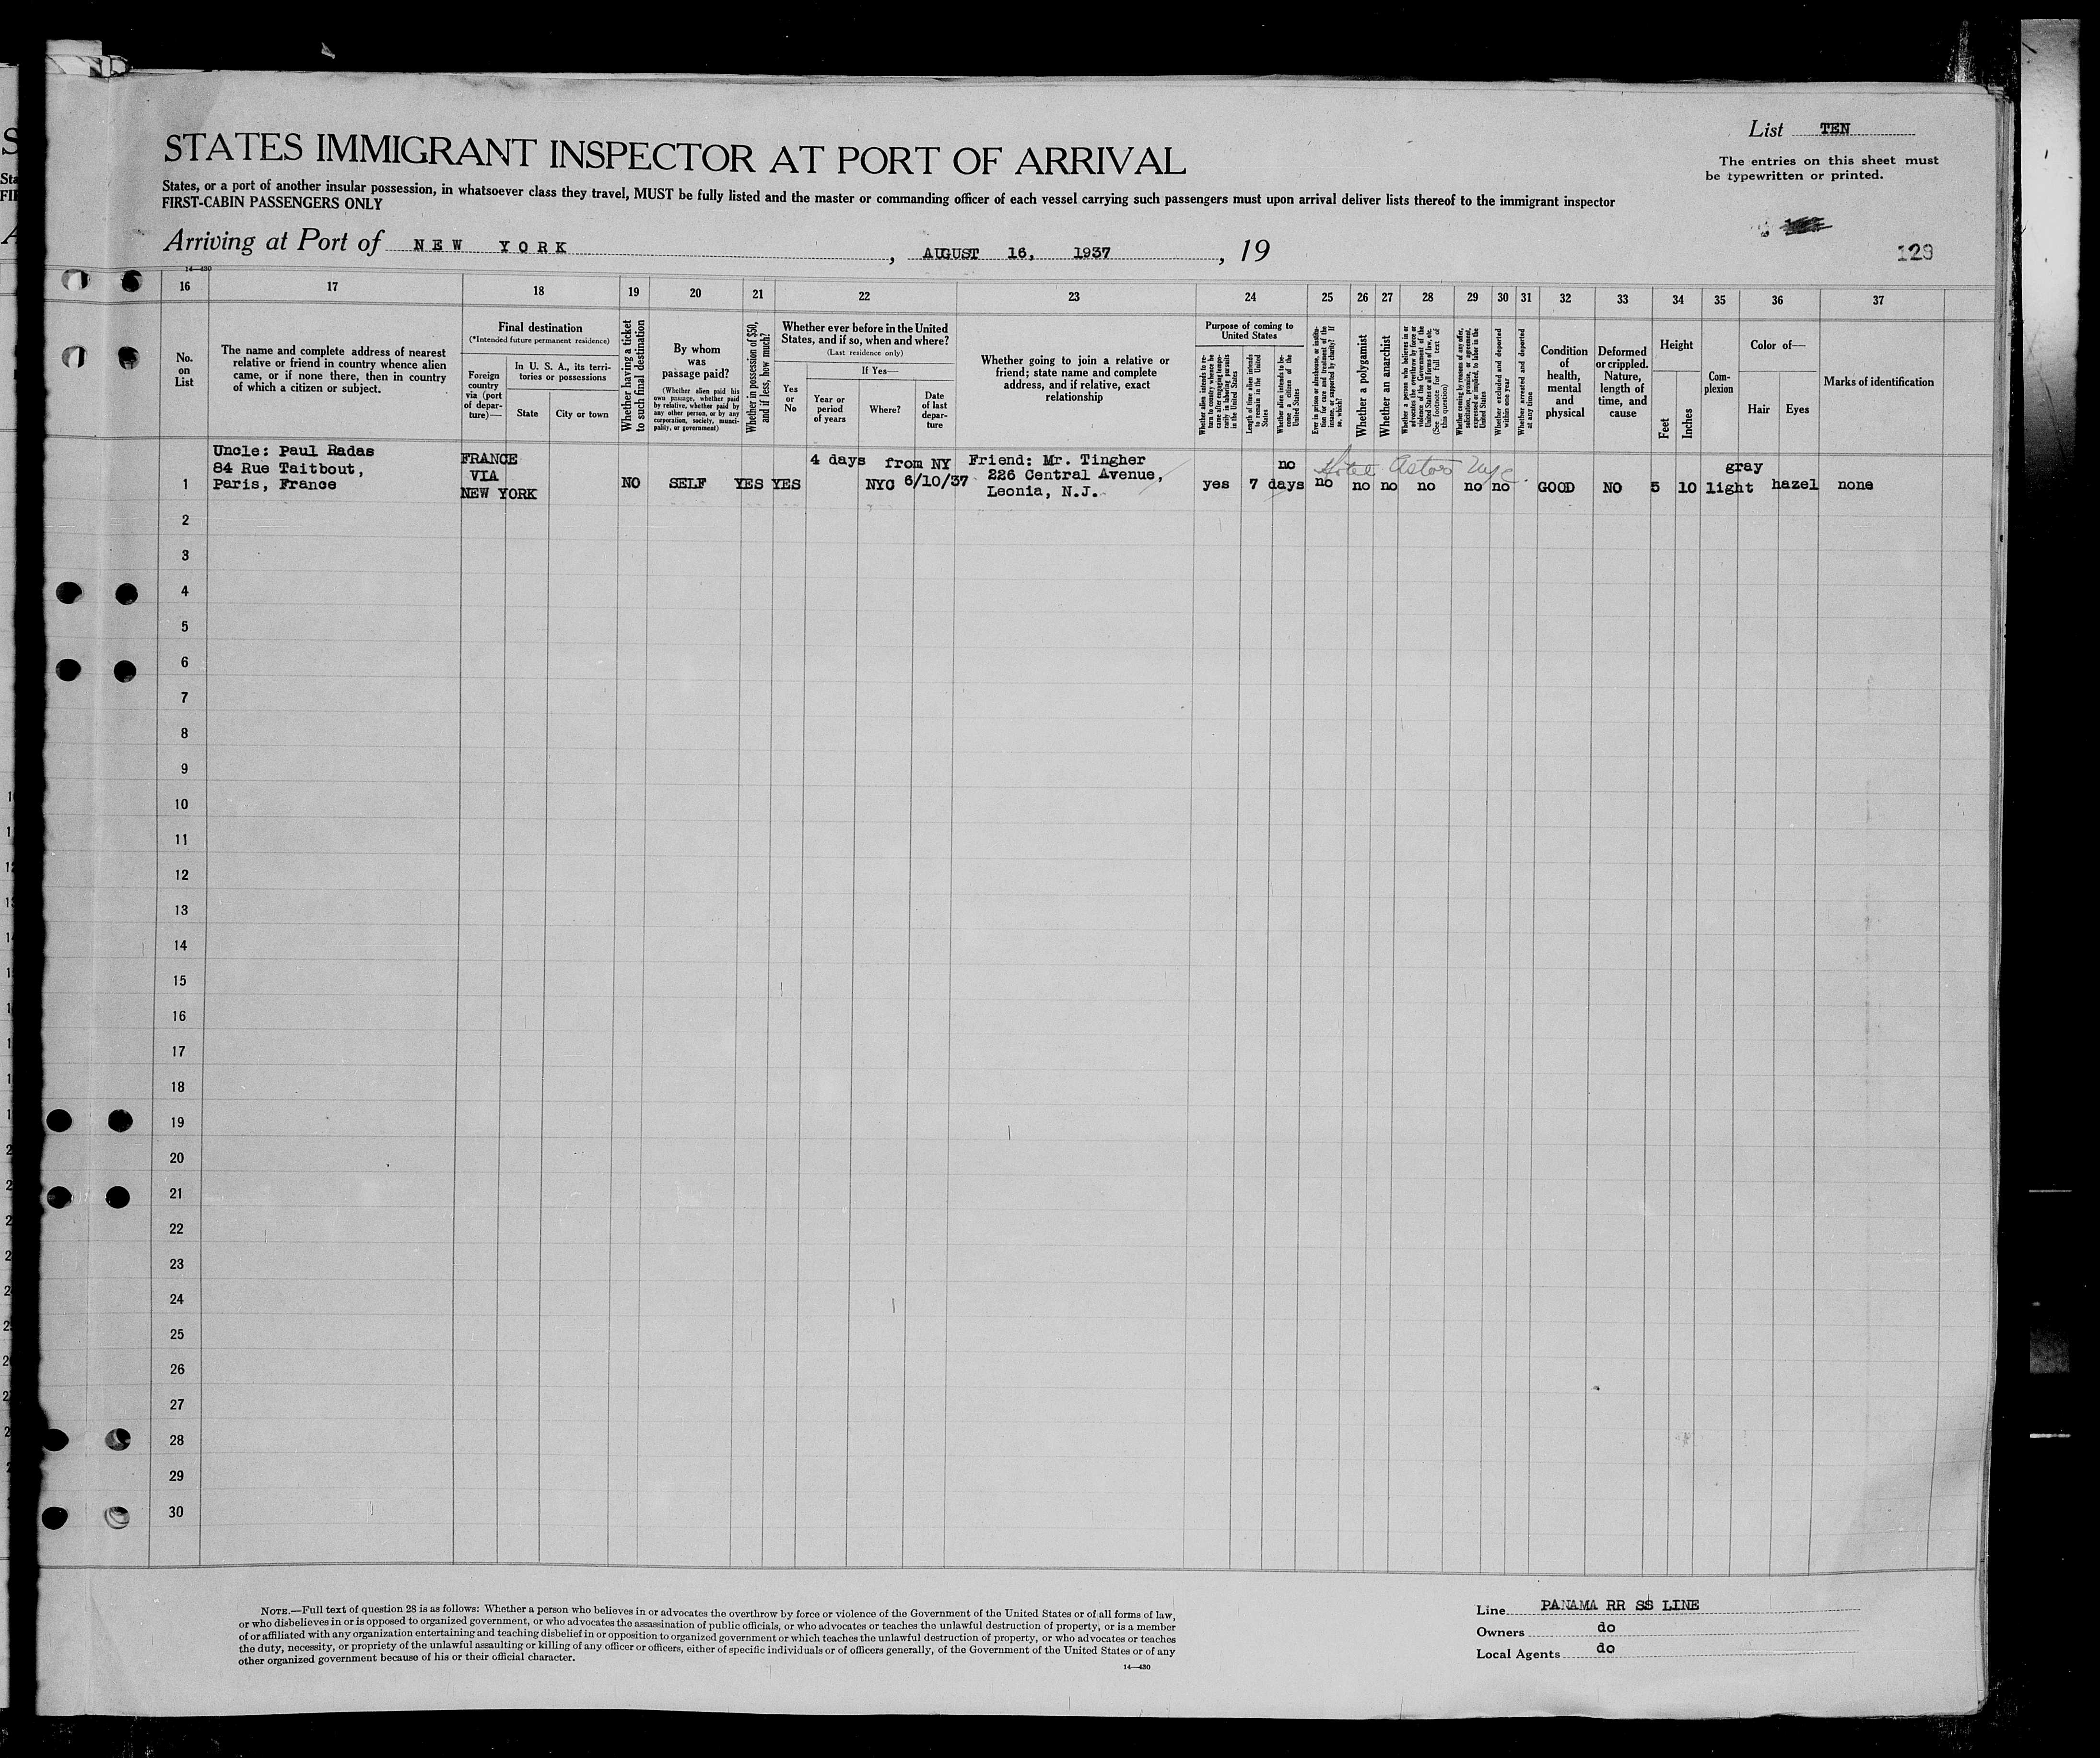 List TEN
STATES IMMIGRANT INSPECTOR AT PORT OF ARRIVAL
The entries on this sheet must
be typewritten or printed.
States, or a port of another insular possession, in whatsoever class they travel, MUST be fully listed and the master or commanding officer of each vessel carrying such passengers must upon arrival deliver lists thereof to the immigrant inspector
FIRST-CABIN PASSENGERS ONLY
Arriving at Port of NEW YORK, AUGUST 16, 1937, 19
129
14—430
16 17 18 19 20 21 22 23 24 25 26 27 28 29 30 31 32 33 34 35 36 37
No.
on
List
The name and complete address of nearest
relative or friend in country whence alien
came, or if none there, then in country
of which a citizen or subject.
Final destination
(*Intended future permanent residence)
Foreign
country
via (port
of depar-
ture)—
In U. S. A., its terri-
tories or possessions
State
City or town
Whether having a ticket
to such final destination
By whom
was
passage paid?
(Whether alien paid his
own passage, whether paid
by relative, whether paid by
any other person, or by any
corporation, society, munici-
pality, or government)
Whether in possession of $50,
and if less, how much?
Whether ever before in the United
States, and if so, when and where?
(Last residence only)
Yes
or
No
If Yes—
Year or
period
of years
Where?
Date
of last
depar-
ture
Whether going to join a relative or
friend; state name and complete
address, and if relative, exact
relationship
Purpose of coming to
United States
Whether alien intends to re-
turn to country whence he
came after engaging tempo-
rarily in laboring pursuits
in the United States
Length of time alien intends
to remain in the United
States
Whether alien intends to be-
come a citizen of the
United States
Ever in prison or almshouse, or institu-
tion for care and treatment of the
insane, or supported by charity? If
so, which?
Whether a polygamist
Whether an anarchist
Whether a person who believes in or
advocates the overthrow by force or
violence of the Government of the
United States or all forms of law, etc.
(See footnote for full text of
this question)
Whether coming by reasons of any offer,
solicitation, promise, or agreement,
expressed or implied, to labor in the
United States
Whether excluded and deported
within one year
Whether arrested and deported
at any time
Condition
of
health,
mental
and
physical
Deformed
or crippled.
Nature,
length of
time, and
cause
Height
Feet
Inches
Com-
plexion
Color of—
Hair
Eyes
Marks of identification
Uncle: Paul Radas
84 Rue Taitbout,
Paris, France
FRANCE
VIA
NEW YORK
1 NO SELF YES YES
4 days from NY
NYC 6/10/37
Friend: Mr. Tingher
226 Central Avenue,
Leonia, N.J.
yes 7 days
no
Hotel Astor NYC.
no no no no no no GOOD NO 5 10 light
gray
hazel none
2
3
4
5
6
7
8
9
10
11
12
13
14
15
16
17
18
19
20
21
22
23
24
25
26
27
28
29
30
NOTE.—Full text of question 28 is as follows: Whether a person who believes in or advocates the overthrow by force or violence of the Government of the United States or of all forms of law,
or who disbelieves in or is opposed to organized government, or who advocates the assassination of public officials, or who advocates or teaches the unlawful destruction of property, or is a member
of or affiliated with any organization entertaining and teaching disbelief in or opposition to organized government or which teaches the unlawful destruction of property, or who advocates or teaches
the duty, necessity, or propriety of the unlawful assaulting or killing of any officer or officers, either of specific individuals or of officers generally, of the Government of the United States or of any
other organized government because of his or their official character.
14—430
Line PANAMA RR SS LINE
Owners do
Local Agents do